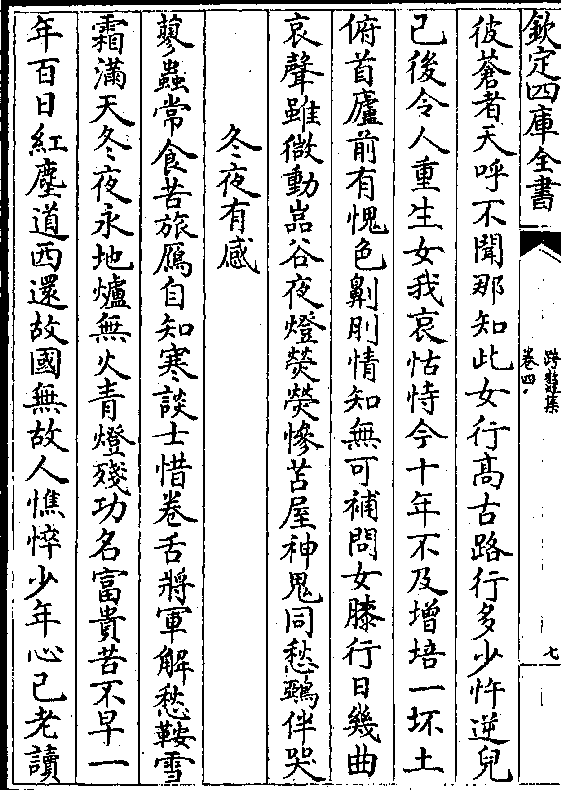 欽定四庫全書
跨鼇集
卷四
七
彼蒼者天呼不聞那知此女行高古路行多少忤逆兒
已後令人重生女我哀怙恃今十年不及增培一坏土
俯首廬前有愧色劓刖情知無可補問女膝行日幾曲
哀聲雖微動嵓谷夜燈熒熒慘苫屋神鬼同愁鵶伴哭
冬夜有感
蓼蟲常食苦旅鴈自知寒談士惜卷舌將軍解愁鞍雪
霜滿天冬夜永地爐無火青燈殘功名富貴苦不早一
年百日紅塵道西還故國無故人憔悴少年心已老讀